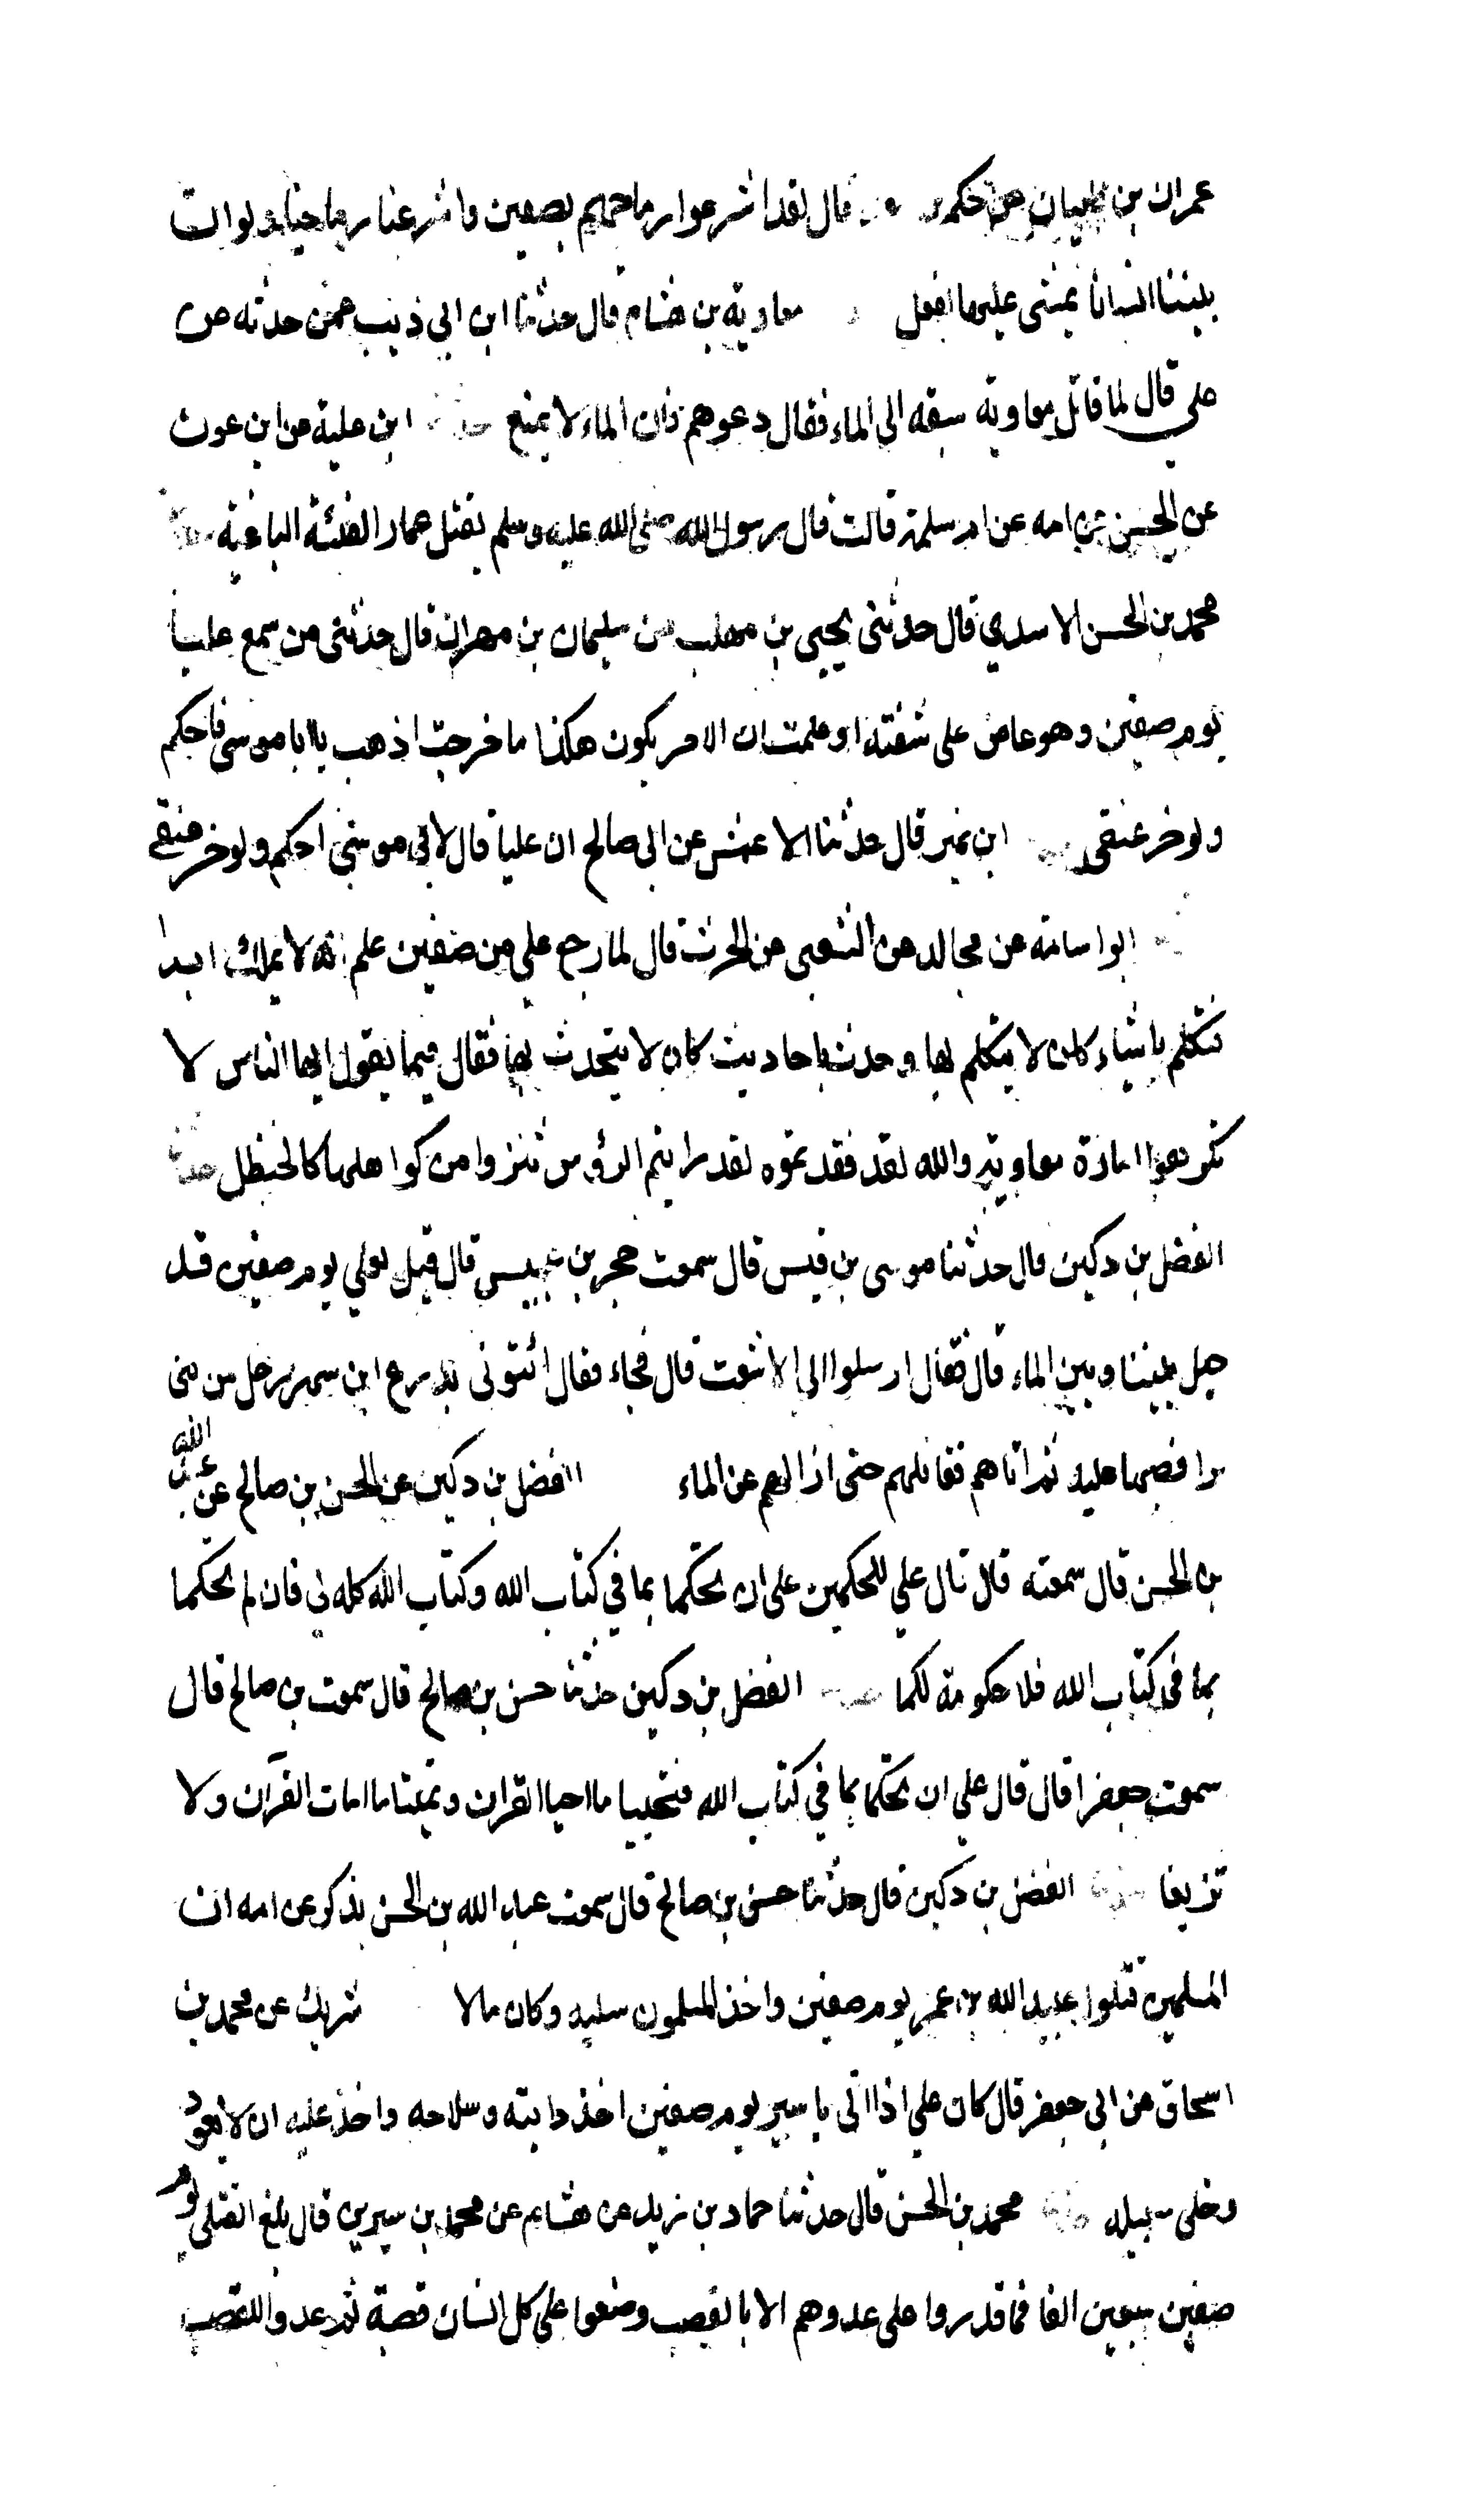 عمران بن ظبيان عن حكم قال لقد اشرعوا رماحهم بصفين واشرعنا رماحنا ولو ان
بيننا انسانا يمشي عليها لفعل معاوية بن هشام قال حدثنا ابن ابي ذيب عمن حدثه عن
علي قال لما قاتل معاوية سبقه الى الماء فقال دعوهم فان الماء لا يمنع حدثنا ابن علية عن ابن عون
عن الحسن عن امه عن ام سلمة قالت قال رسول الله صلى الله عليه وسلم تقتل عمار الفئة الباغية
محمد بن الحسن الاسدي قال حدثني يحيى بن مهلب عن سليمان بن مهران قال حدثني من سمع عليا
يوم صفين وهو عاض على شفته لو علمت ان الامر يكون هكذا ما خرجت اذهب يا ابا موسى فاحكم
ولو خر عنقي ابن نمير قال حدثنا الاعمش عن ابي صالح ان عليا قال لابي موسى احكم ولو خر عنقي
ابو اسامة عن مجالد عن الشعبي عن الحرث قال لما رجع علي من صفين علم انه لا يملك ابدا
فتكلم باشياء كان لا يتكلم بها وحدث باحاديث كان لا يتحدث بها فقال فيما يقول ايها الناس لا
تكرهوا امارة معاوية والله لقد فقدتموه لقد رايتم الرؤس تنزوا من كواهلها كالحنظل حدثنا
الفضل بن دكين قال حدثنا موسى بن قيس قال سمعت حجر بن عنبس قال قيل لعلي يوم صفين قد
حيل بيننا وبين الماء قال فقال ارسلوا الى الاشعث قال فجاء فقال ائتوني بدرع ابن سهر رجل من بني
برا فصبها عليه ثم اتاهم فقاتلهم حتى ازالهم عن الماء الفضل بن دكين عن الحسن بن صالح عن عبد الله
بن الحسن قال سمعته قال قال علي للحكمين على ان تحكما بما في كتاب الله وكتاب الله كله لي فان لم تحكما
بما في كتاب الله فلا حكومة لكما الفضل بن دكين حدثنا حسن بن صالح قال سمعت بن صالح قال
سمعت جعفرا قال قال علي ان تحكما بما في كتاب الله فتحييا ما احيا القران وتميتا ما امات القرآن ولا
تزيغا الفضل بن دكين قال حدثنا حسن بن صالح قال سمعت عبد الله بن الحسن يذكر عن امه ان
المسلمين قتلوا عبيد الله بن عمر يوم صفين واخذ المسلمون سلبه وكان مالا شريك عن محمد بن
اسحاق عن ابي جعفر قال كان علي اذا اتى باسير يوم صفين اخذ دابته وسلاحه واخذ عليه ان لا يعود
وخلى سبيله محمد بن الحسن قال حدثنا حماد بن زيد عن هشام عن محمد بن سيرين قال بلغ القتلى يوم
صفين سبعين الفا فما قدروا على عدوهم الا بالقصب وضعوا على كل انسان قصبة ثم عدوا القصب